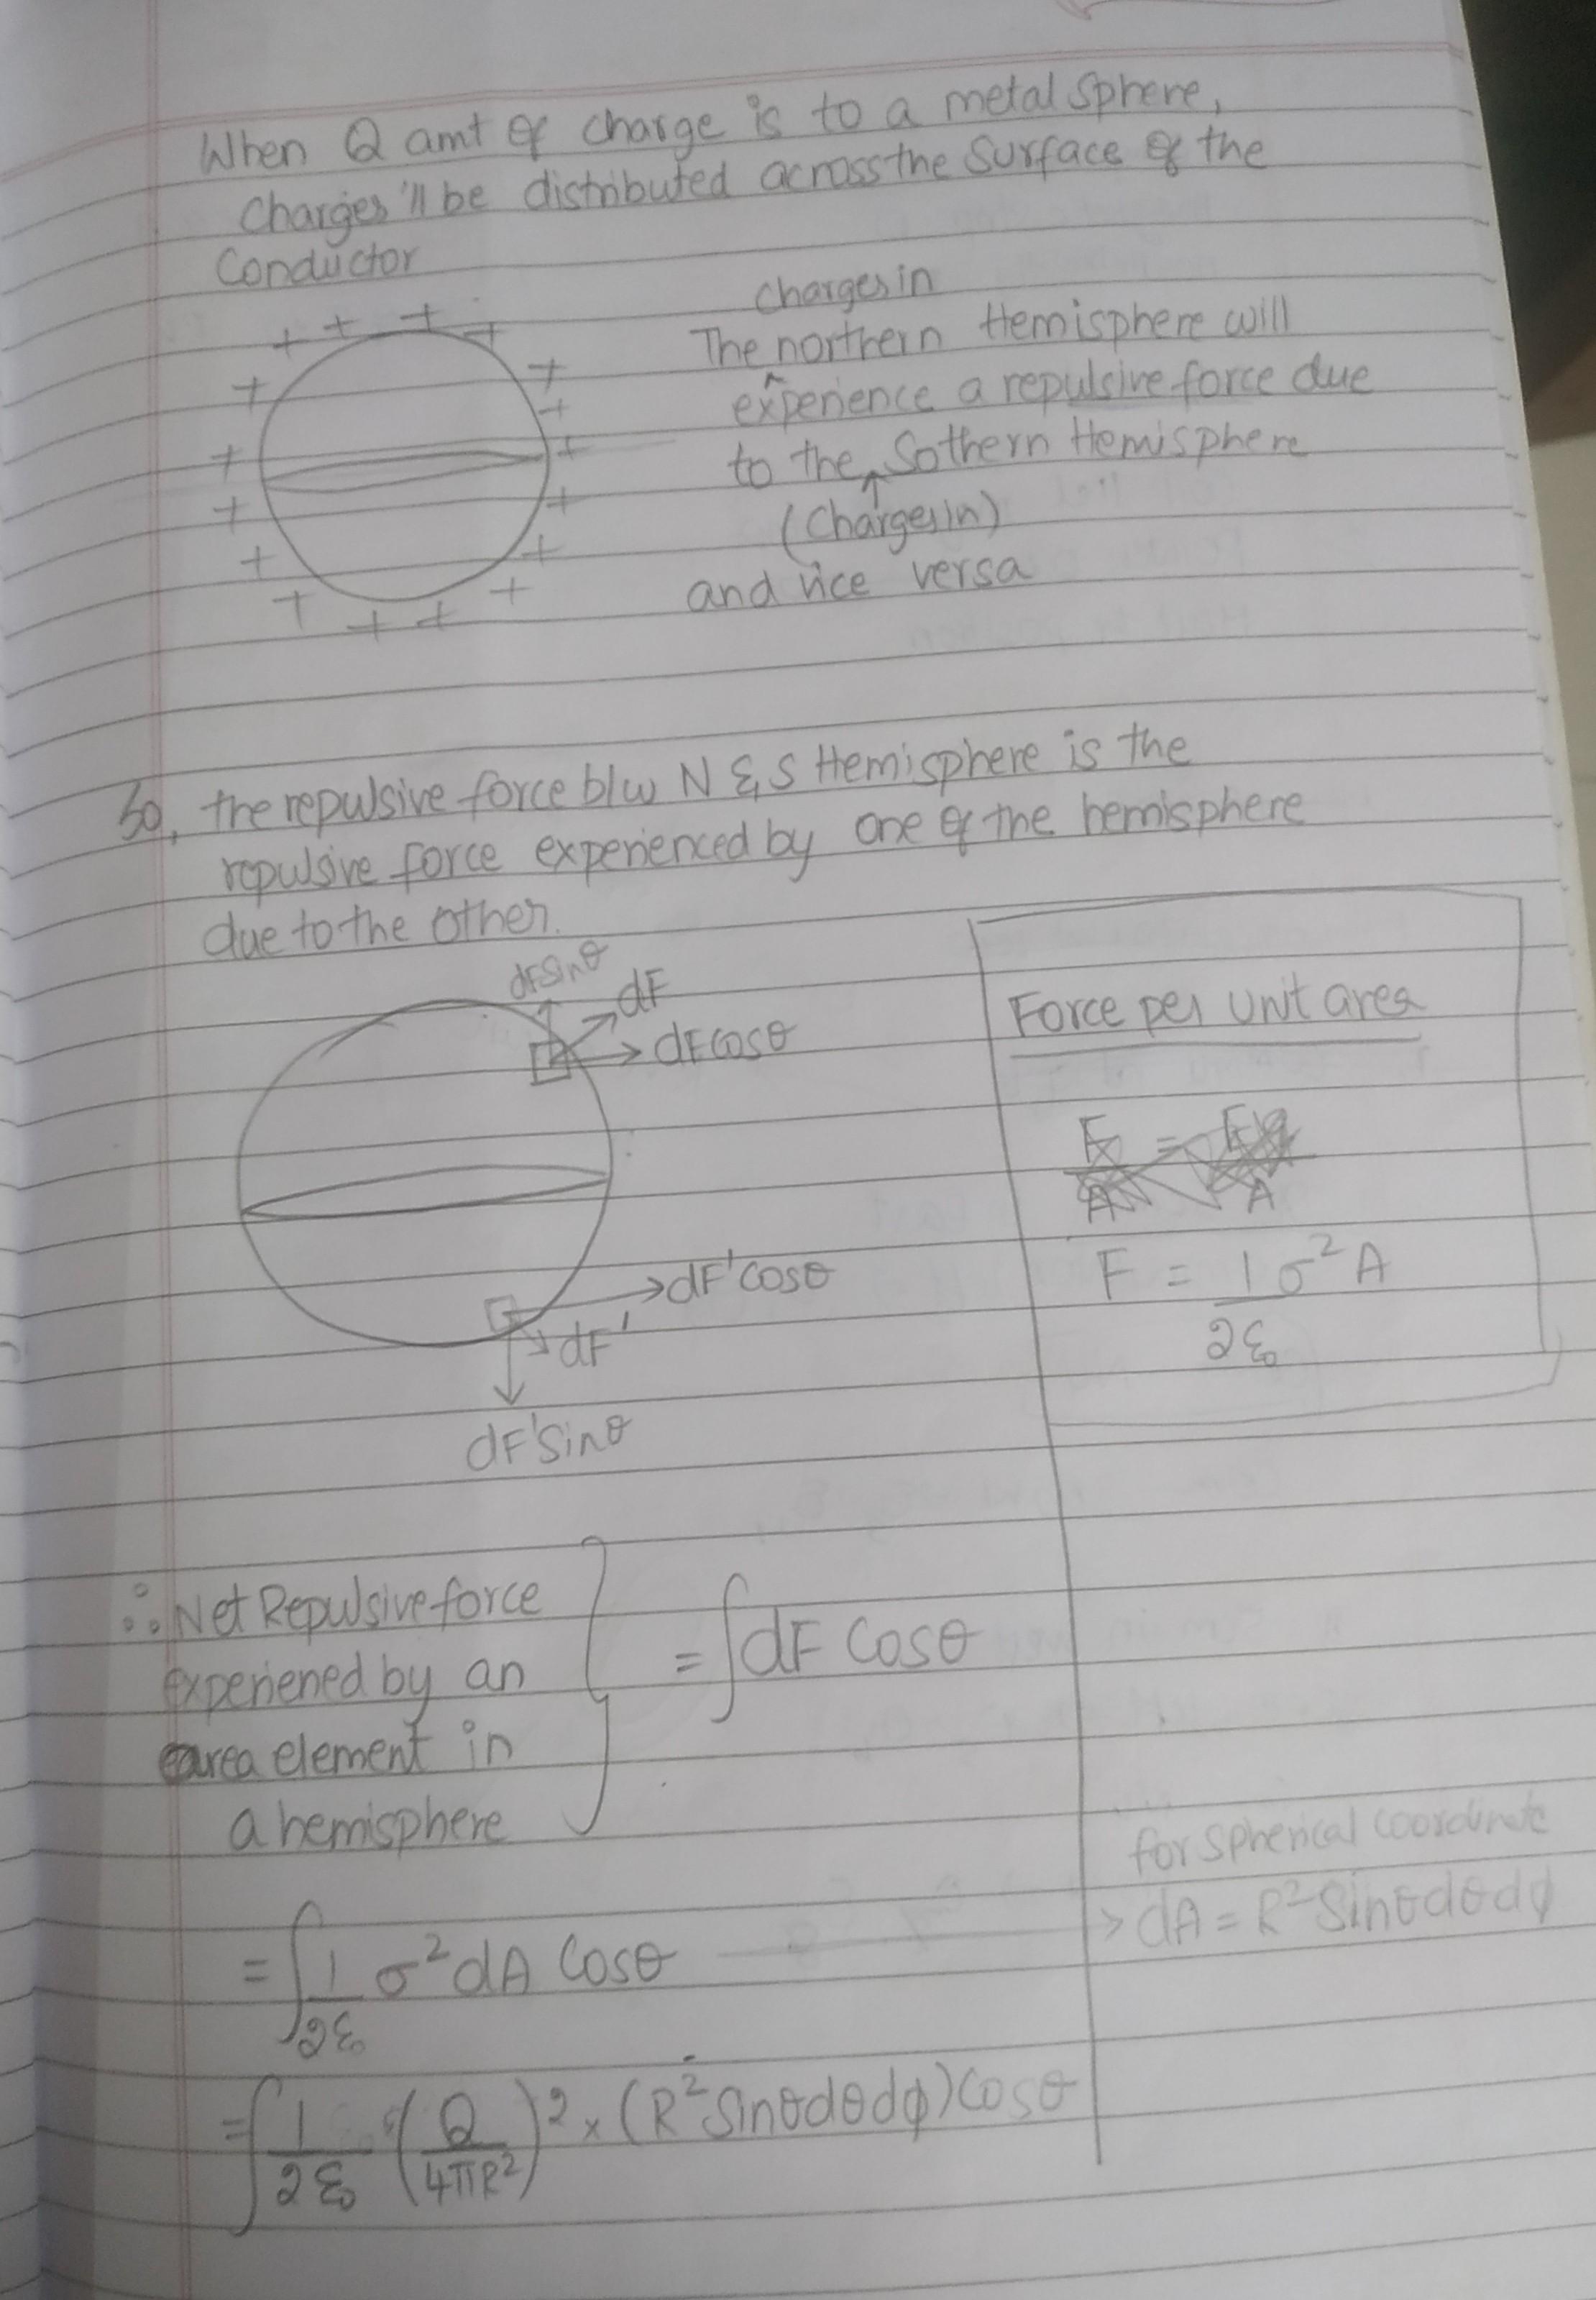 When Q amt of charge is to a metal sphere,
Charges'll be distributed across the Surface of the
Conductor
+ + + + + + + + + + + + + + + + + +
Charges in
The northern Hemisphere will
^
experience a repulsive force due
to the Sothern Hemisphere
↑
(Charges in)
and vice versa
So, the repulsive force b/w N & S Hemisphere is the
repulsive force experienced by one of the hemisphere
due to the other.
dFsinθ
dF
dFcosθ
dF'cosθ
dF'
dF'sinθ
Force per unit area
F = 1/2ε₀ σ²A
∴ Net Repulsive force
experiened by an
area element in
a hemisphere
} = ∫dF Cosθ
= ∫ 1/2ε₀ σ² dA Cosθ
for spherical coordinate
> dA = R² Sinθ dθ dϕ
= ∫ 1/2ε₀ (Q/4πR²)² × (R² Sinθ dθ dϕ) Cosθ